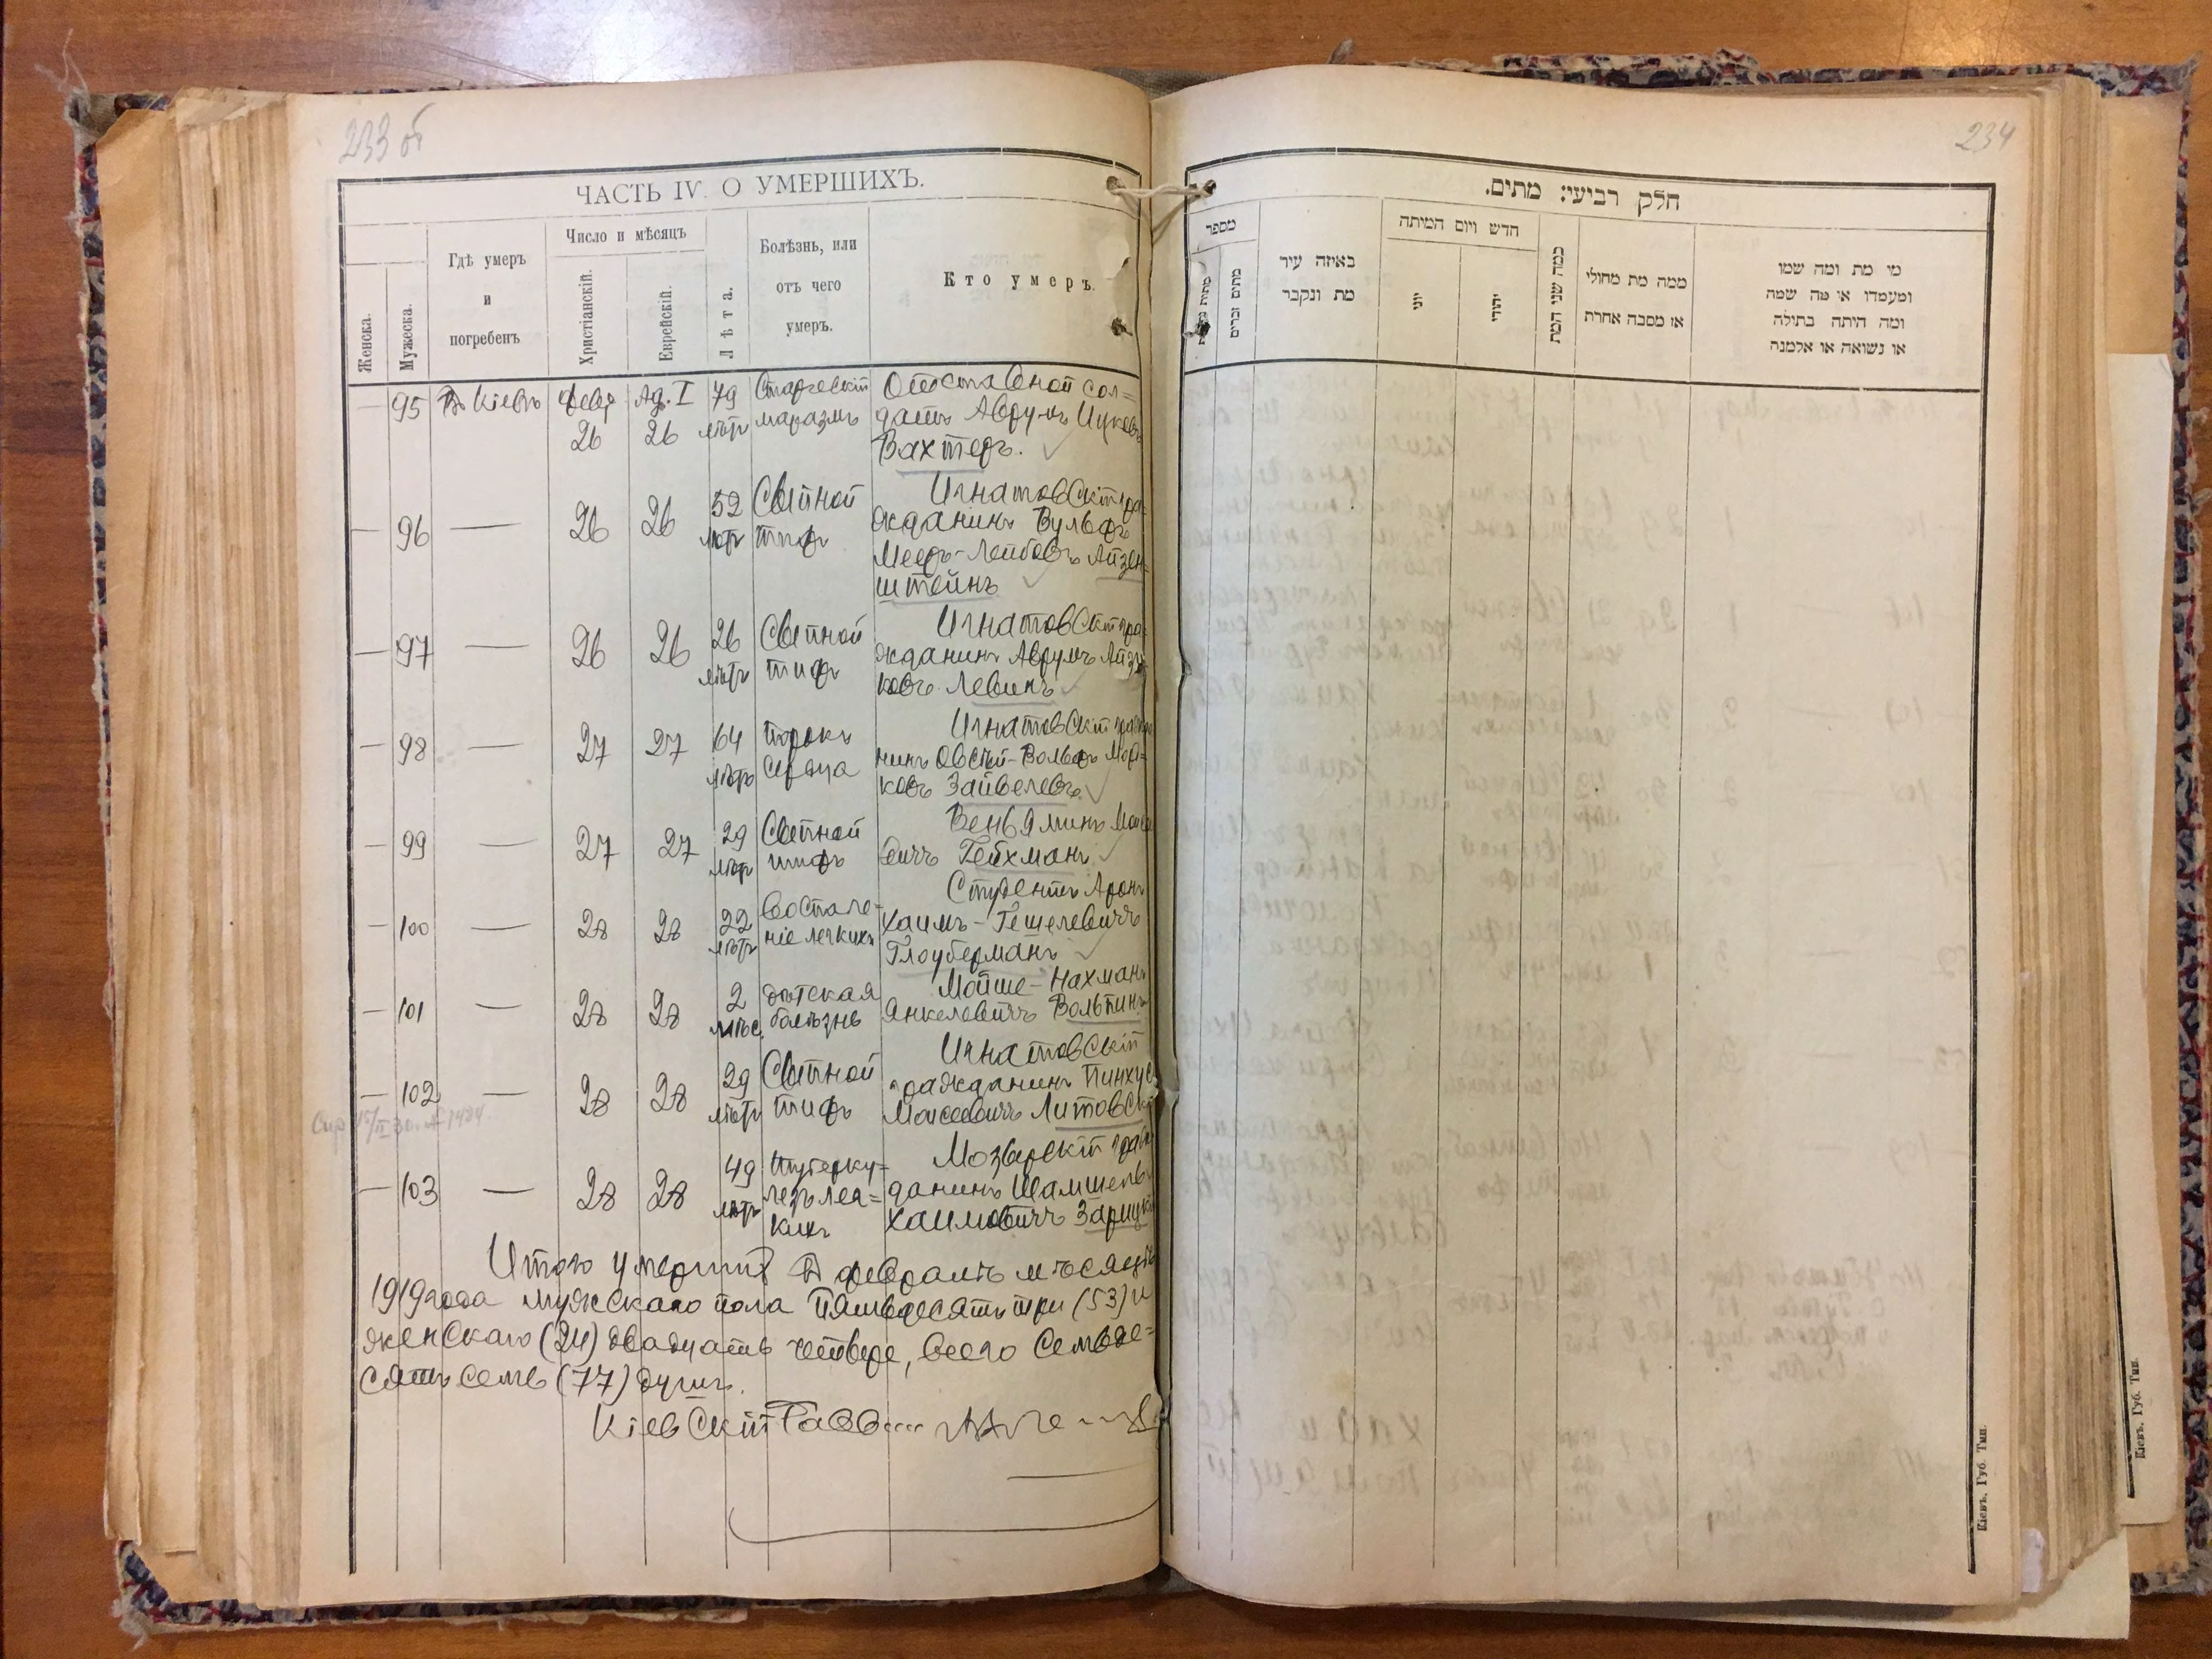 233 об
ЧАСТЬ IV. О УМЕРШИХЪ.
Женска.
Мужеска.
Гдѣ умеръ
и
погребенъ
Число и мѣсяцъ
Христіанскій.
Еврейскій.
Лѣта.
Болѣзнь, или
отъ чего
умеръ.
Кто умеръ.
— 95 Въ Кіевѣ Февр Ад. I 79 Старческій Отставной сол=
26 26 лѣтъ маразмъ датъ Аврумъ Ицковъ
Вахтеръ.
— 96 — 26 26 52 Сыпной Игнатовскій гра-
лѣтъ тифъ жданинъ Вульфъ
Мееръ-Лейбовъ Айзен=
штейнъ
— 97 — 26 26 26 Сыпной Игнатовскій гра-
лѣтъ тифъ жданинъ Аврумъ Айзи-
ковъ Левинъ
— 98 — 27 27 64 Порокъ Игнатовскій
лѣтъ сердца нинъ Овсѣй-Вольфъ
ковъ Зайвелевъ
— 99 — 27 27 29 Сыпной Веньяминъ
лѣтъ тифъ Гейхманъ
— 100 — 28 28 22 Воспале- Студентъ Аронъ
лѣтъ ніе легкихъ Хаимъ-Гешелевичъ
Глоуберманъ
— 101 — 28 28 2 дѣтская Мойше-Нахманъ
мѣс. болѣзнь Янкелевичъ Вольпинъ
— 102 — 28 28 29 Сыпной Игнатовскій
лѣтъ тифъ гражданинъ Пинхус
Моисеевичъ Литовскій
— 103 — 28 28 49 Туберку= Мозырскій граж
лѣтъ лезъ лег= данинъ Шамшелъ
кихъ Хаимовичъ Зарицкій
Итого умерших въ февралѣ мѣсяцѣ
1919 года мужскаго пола Пятьдесятъ три (53) и
женскаго (24) двадцать четыре, всего Семьде=
сятъ семь (77) душъ.
Кіевскій Равв
234
חלק רביעי: מתים.
מספר
מתים זכרים
באיזה עיר
מת ונקבר
חדש ויום המיתה
יוני
יהודי
כמה שני המת
ממה מת מחולי
או מסבה אחרת
מי מת ומה שמו
ומעמדו או מה שמה
ומה היתה בתולה
או נשואה או אלמנה
Кіевъ. Губ. Тип.
Кіевъ. Губ. Тип.